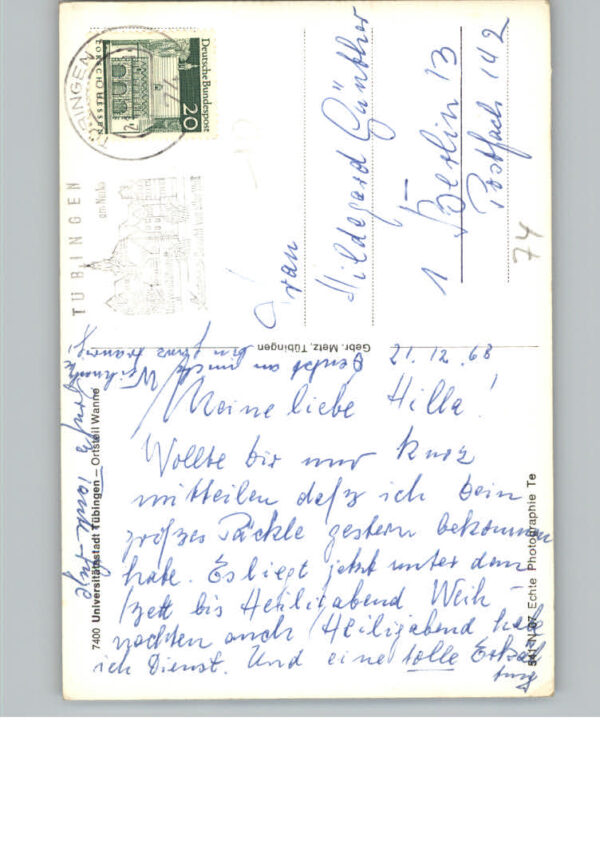 21.12.68
Meine liebe Hilla!
Wollte dir nur kurz
mitteilen daß ich dein
großes Päckle gestern bekommen
habe. Es liegt jetzt unter dem
bett bis Heiligabend Weih-
nachten auch Heiligabend hab
ich Dienst. Und eine tolle Erkäl
tung
Denkst an mich Weihnacht
bin ganz traurig!
Frau
Hildegard Günther
1 Berlin 13
Postfach 142
74
Deutsche Bundespost
20
TÜBINGEN
TÜBINGEN
am Neckar
Gebr. Metz, Tübingen
7400 Universitätsstadt Tübingen – Ortsteil Wanne
Echte Photographie Te